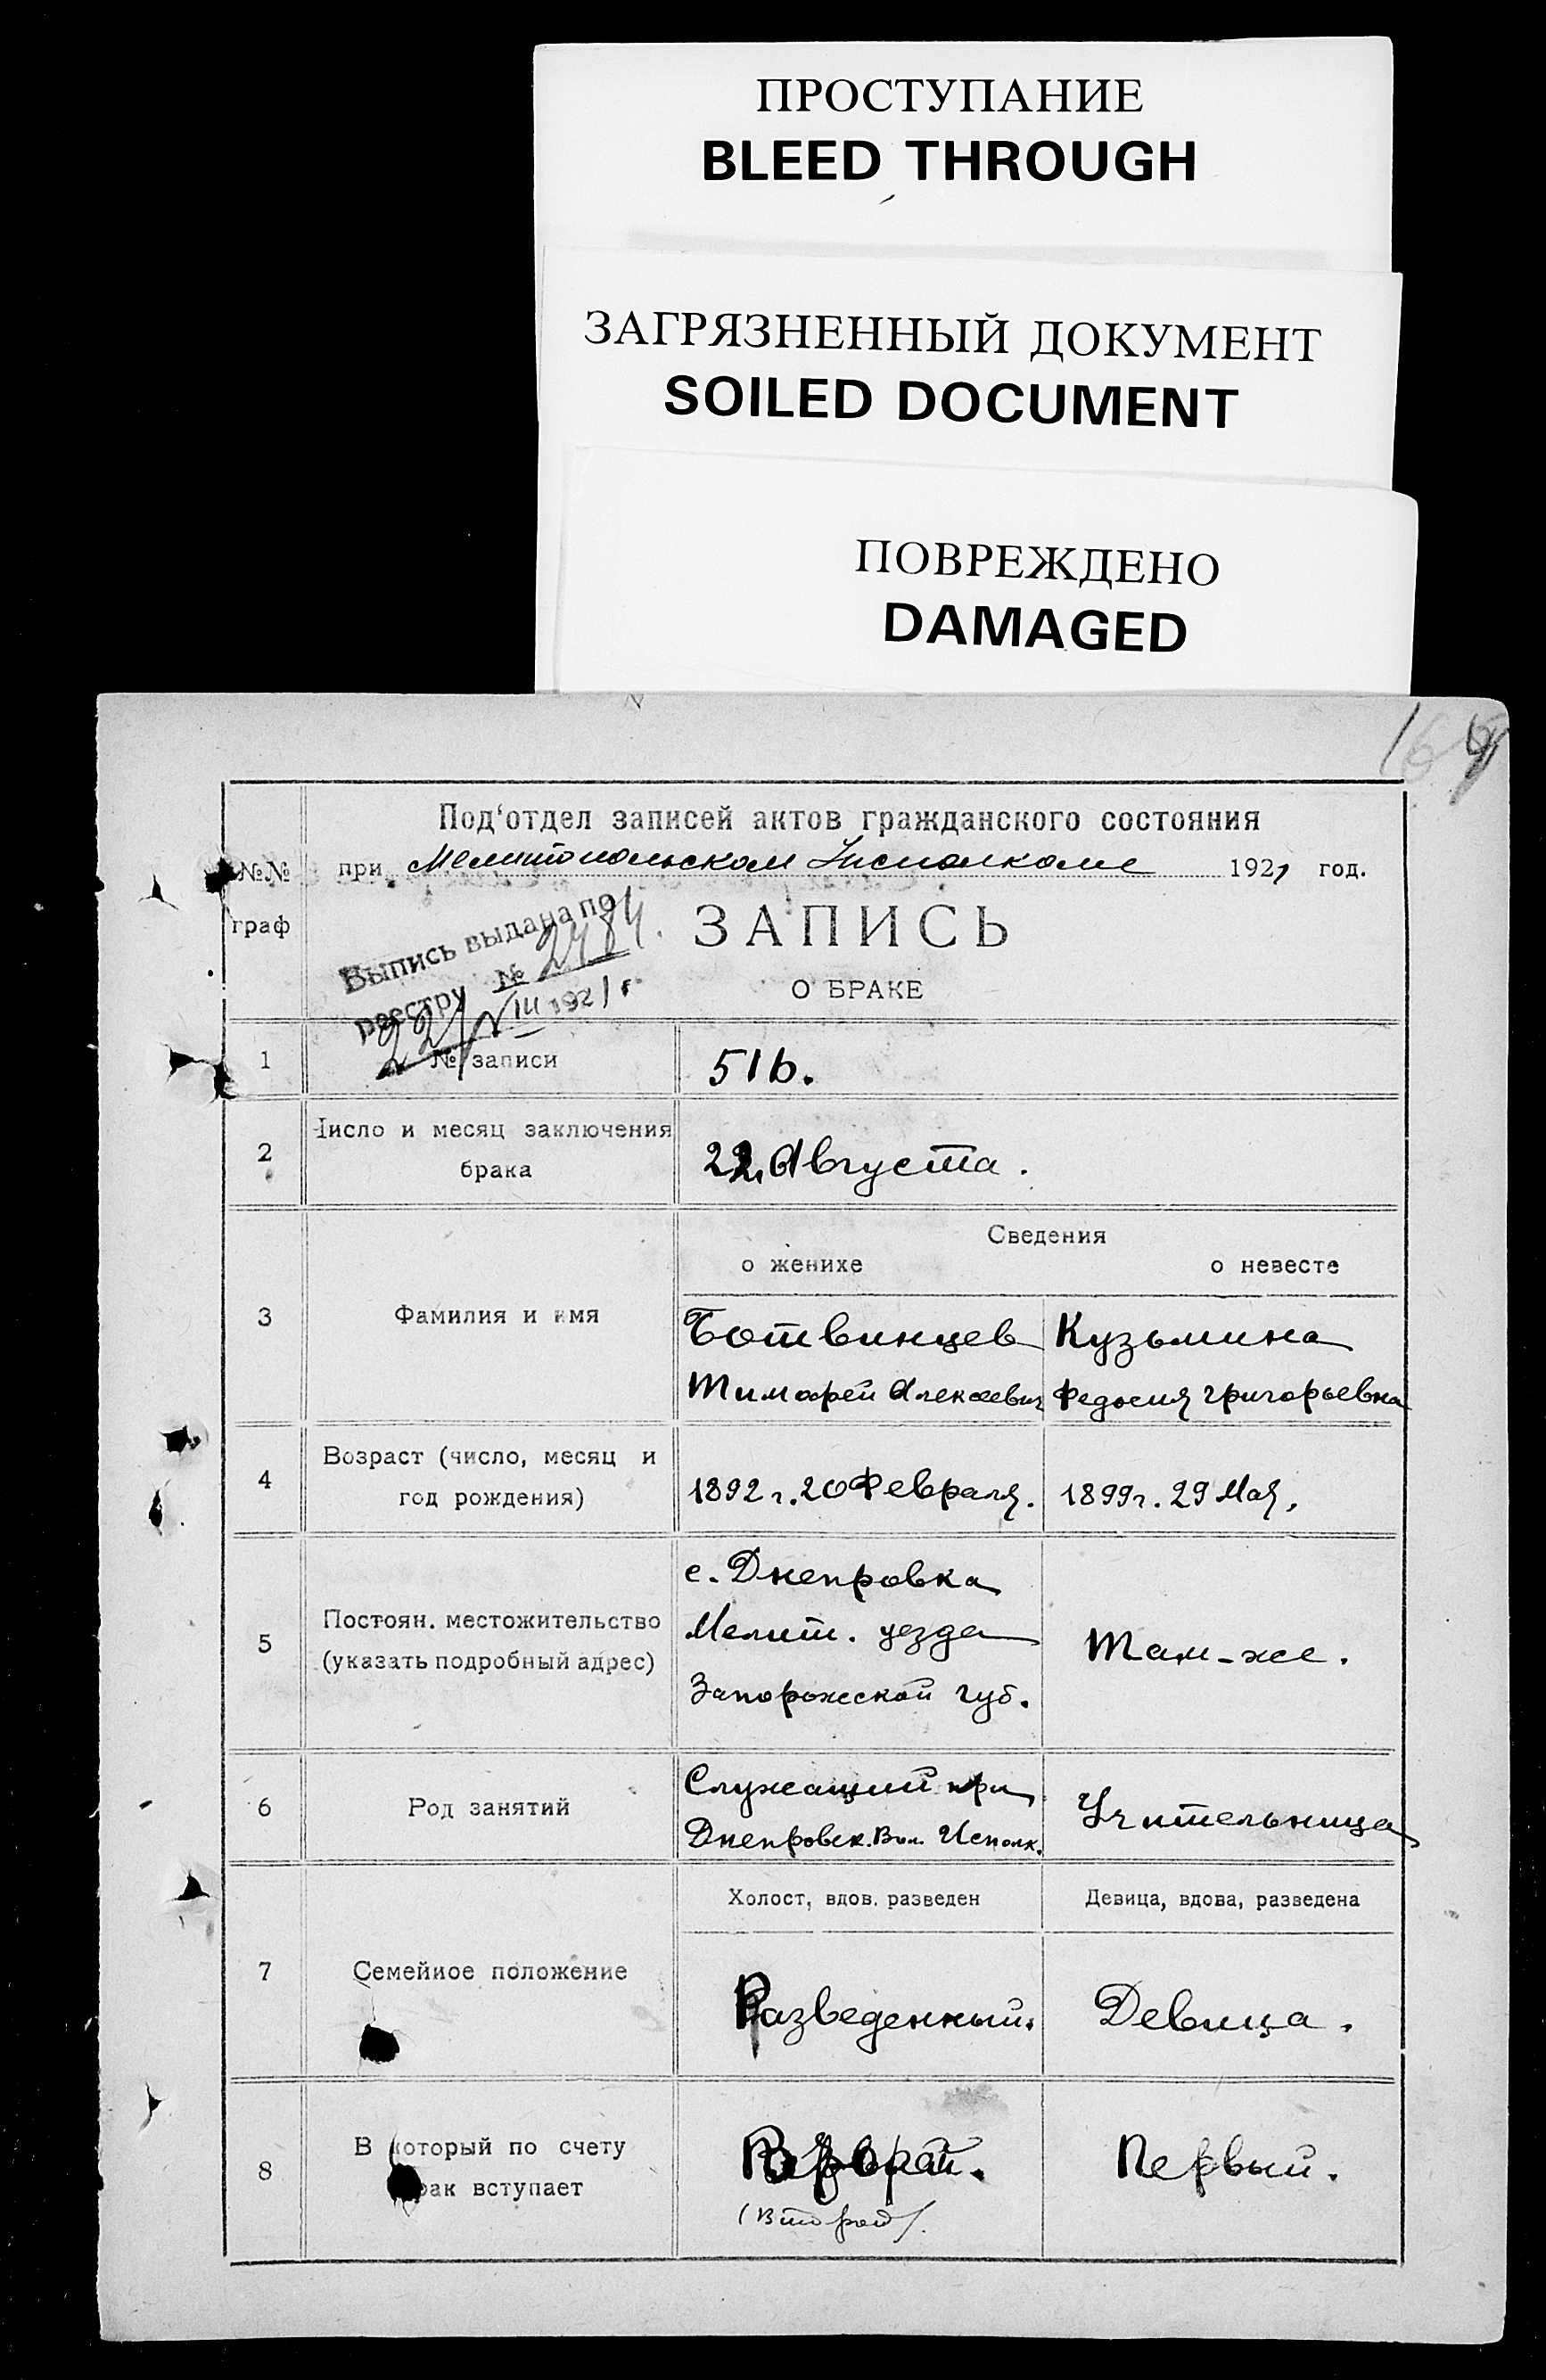 ПРОСТУПАНИЕ
BLEED THROUGH
ЗАГРЯЗНЕННЫЙ ДОКУМЕНТ
SOILED DOCUMENT
ПОВРЕЖДЕНО
DAMAGED
Под'отдел записей актов гражданского состояния
№№ граф
при Мелитопольском Исполкоме 1921 год.
Выпись выдана по
реестру № 2484.
22/VIII 1921 г.
ЗАПИСЬ
О БРАКЕ
1 № записи 516.
2 Число и месяц заключения
брака
22 Августа.
Сведения
о женихе о невесте
3 Фамилия и имя
Ботвинцев Кузьмина
Тимофей Алексеевич Федосия Григорьевна
4 Возраст (число, месяц и
год рождения)
1892 г. 20 Февраля. 1899 г. 29 Мая.
5 Постоян. местожительство
(указать подробный адрес)
с. Днепровка
Мелит. уезда
Запорожской губ.
Там-же.
6 Род занятий
Служащий при
Днепровск. Вол. Исполк.
Учительница
Холост, вдов. разведен Девица, вдова, разведена
7 Семейное положение
Разведенный. Девица.
8 В который по счету
брак вступает
Второй. Первый.
(Второй).